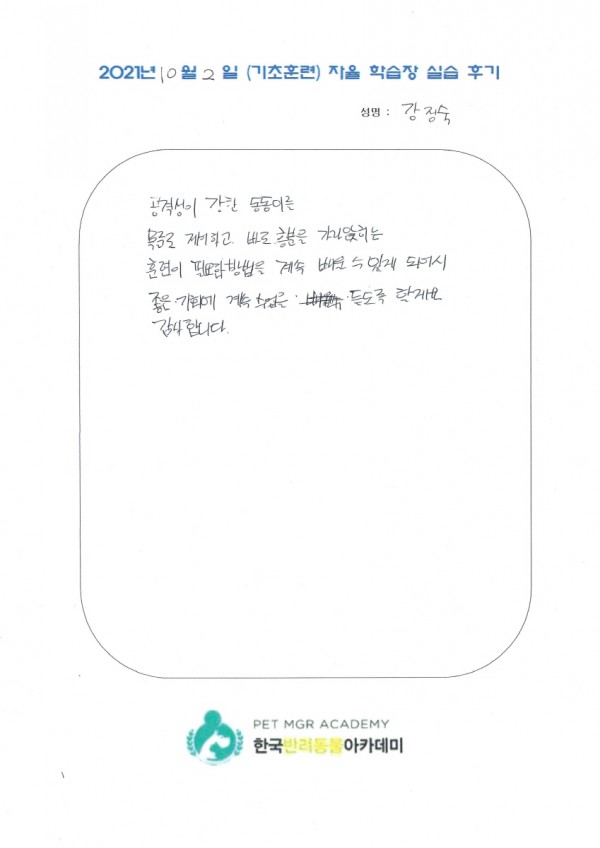 2021년 10월 2일 (기초훈련) 자율 학습장 실습 후기
성명 : 강정숙
공격성이 강한 동동이를
목줄로 제어하고 바로 흥분을 가라앉히는
훈련이 필요한 방법을 계속 배울 수 있게 되어서
좋은 기회에 계속 수업을 듣도록 할게요
감사합니다.
PET MGR ACADEMY
한국반려동물아카데미